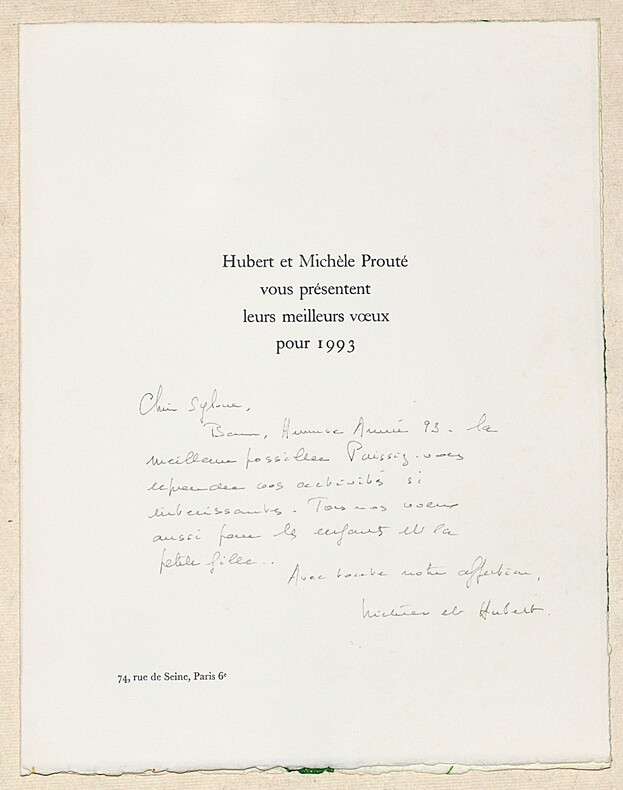 Hubert et Michèle Prouté
vous présentent
leurs meilleurs vœux
pour 1993
Bonne, Heureuse Année 93. la
meilleure possible Puissiez-vous
reprendre vos activités si
intéressantes. Tous nos voeux
aussi pour les enfants et la
petite fille..
Avec toute notre affection,
Michèle et Hubert.
74, rue de Seine, Paris 6e